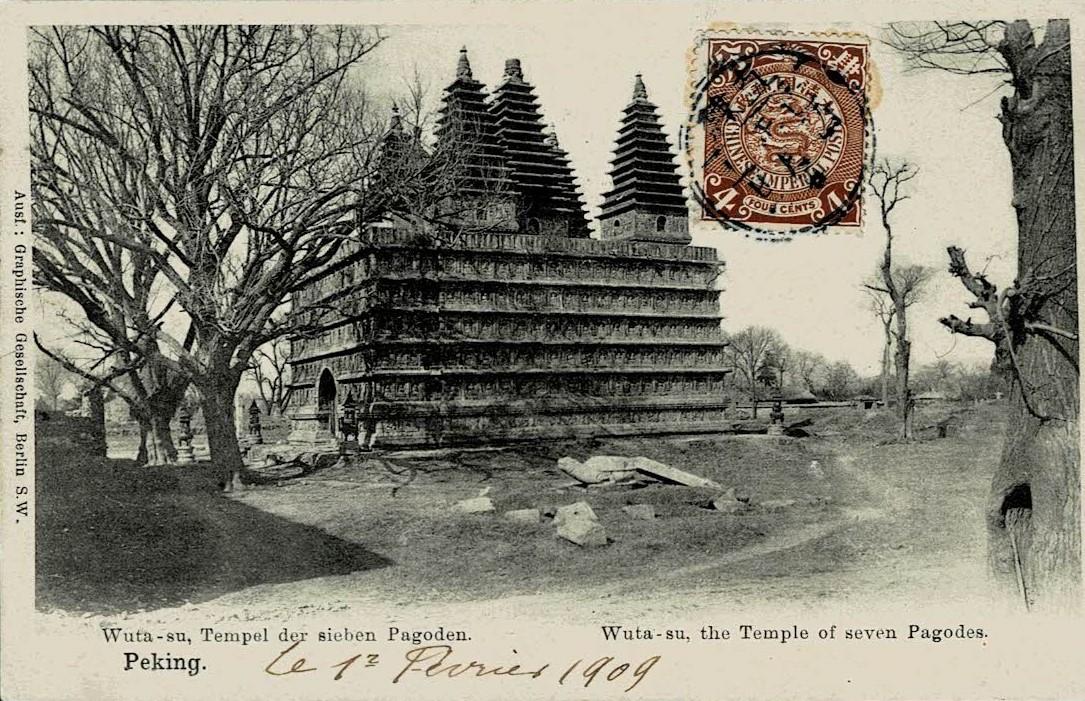 肆
CHINESE IMPERIAL POST
4 4
FOUR CENTS
Ausf.: Graphische Gesellschaft, Berlin S.W.
Wuta-su, Tempel der sieben Pagoden.
Wuta-su, the Temple of seven Pagodes.
Peking.
Le 1er Février 1909